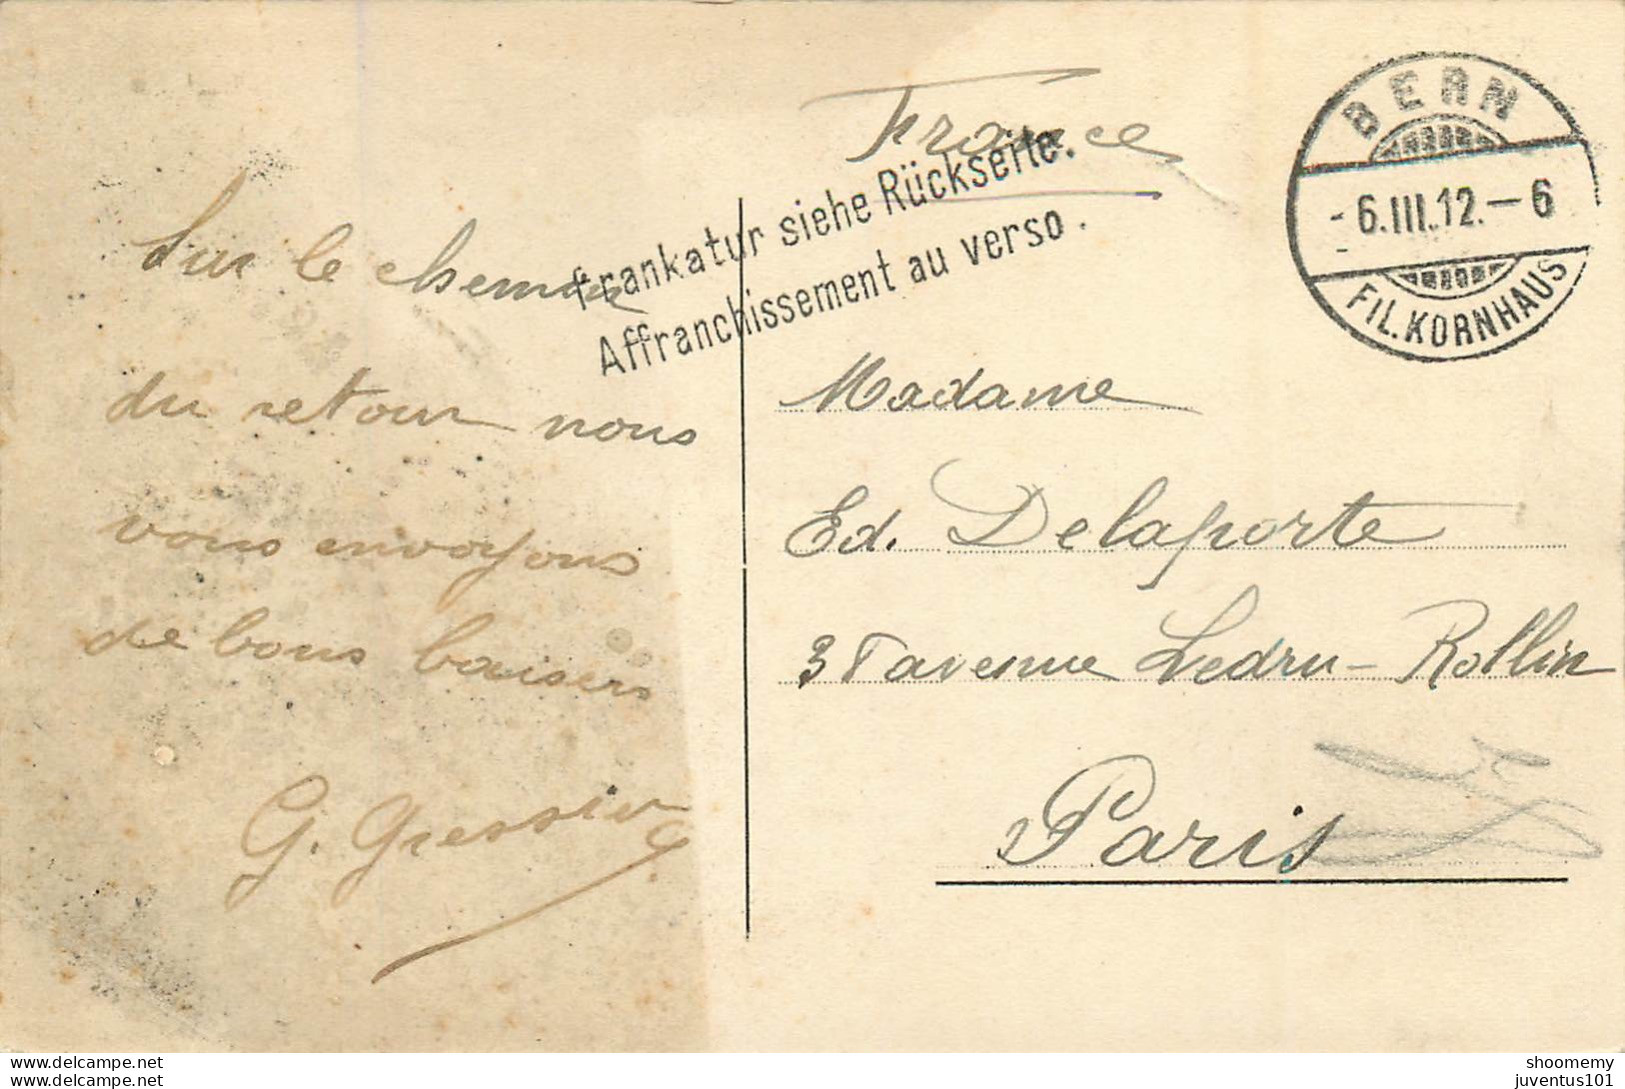 France
BERN
- 6.III.12.—6
FIL.KORNHAUS
Frankatur siehe Rückseite.
Affranchissement au verso.
Sur le chemin
du retour nous
vous envoyons
de bons baisers
G. Gressier
Madame
Ed. Delaporte
avenue Ledru-Rollin
Paris
delcampe.net
delcampe.net
shoomemy
juventus101